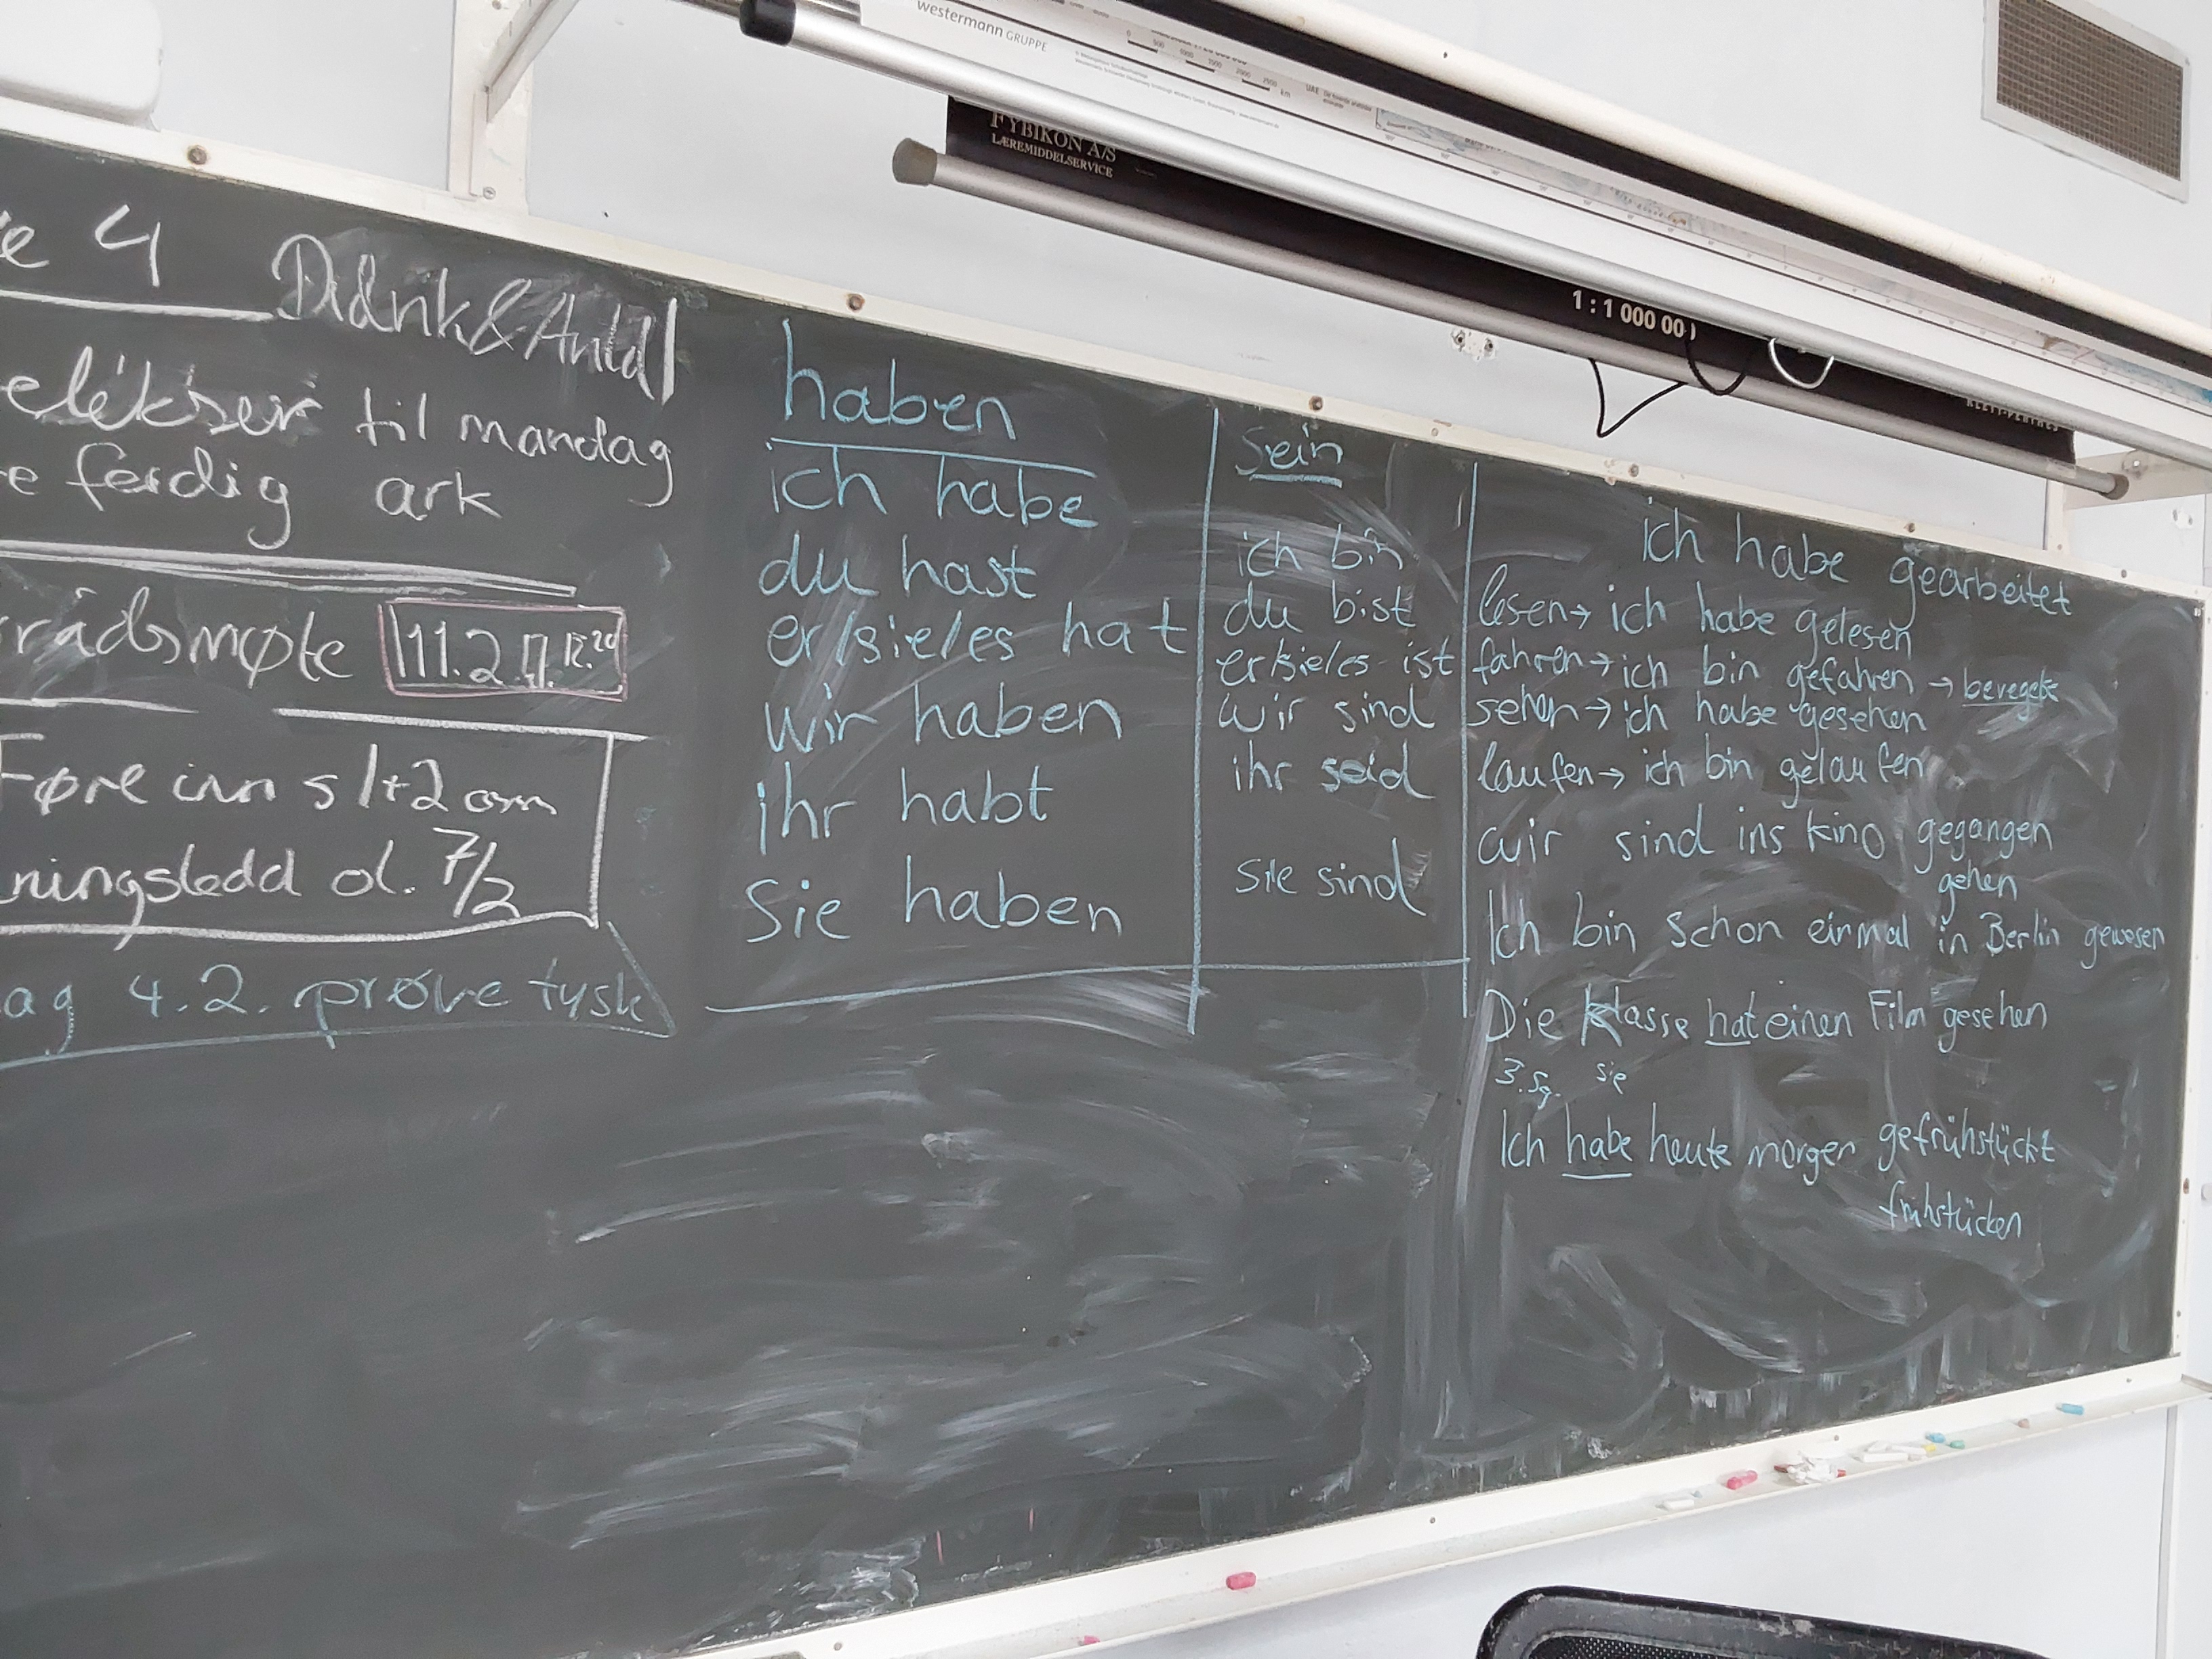 westermann GRUPPE
0 500 1000 1500 2000 2500 km
FYBIKON A/S
LÆREMIDDELSERVICE
1 : 1 000 00
e 4
til mandag
e ferdig ark
rådsmøte 11.2
Føre inn s 1+2 om
ningsledd ol. 7/2
ag 4.2. prøve tysk
haben
ich habe
du hast
er/sie/es hat
wir haben
ihr habt
Sie haben
Sein
ich bin
du bist
er/sie/es ist
wir sind
ihr seid
sie sind
ich habe gearbeitet
lesen → ich habe gelesen
fahren → ich bin gefahren → bevegelse
sehen → ich habe gesehen
laufen → ich bin gelaufen
wir sind ins kino gegangen
gehen
Ich bin schon einmal in Berlin gewesen
Die Klasse hat einen Film gesehen
3. Sg. sie
Ich habe heute morgen gefrühstückt
frühstücken